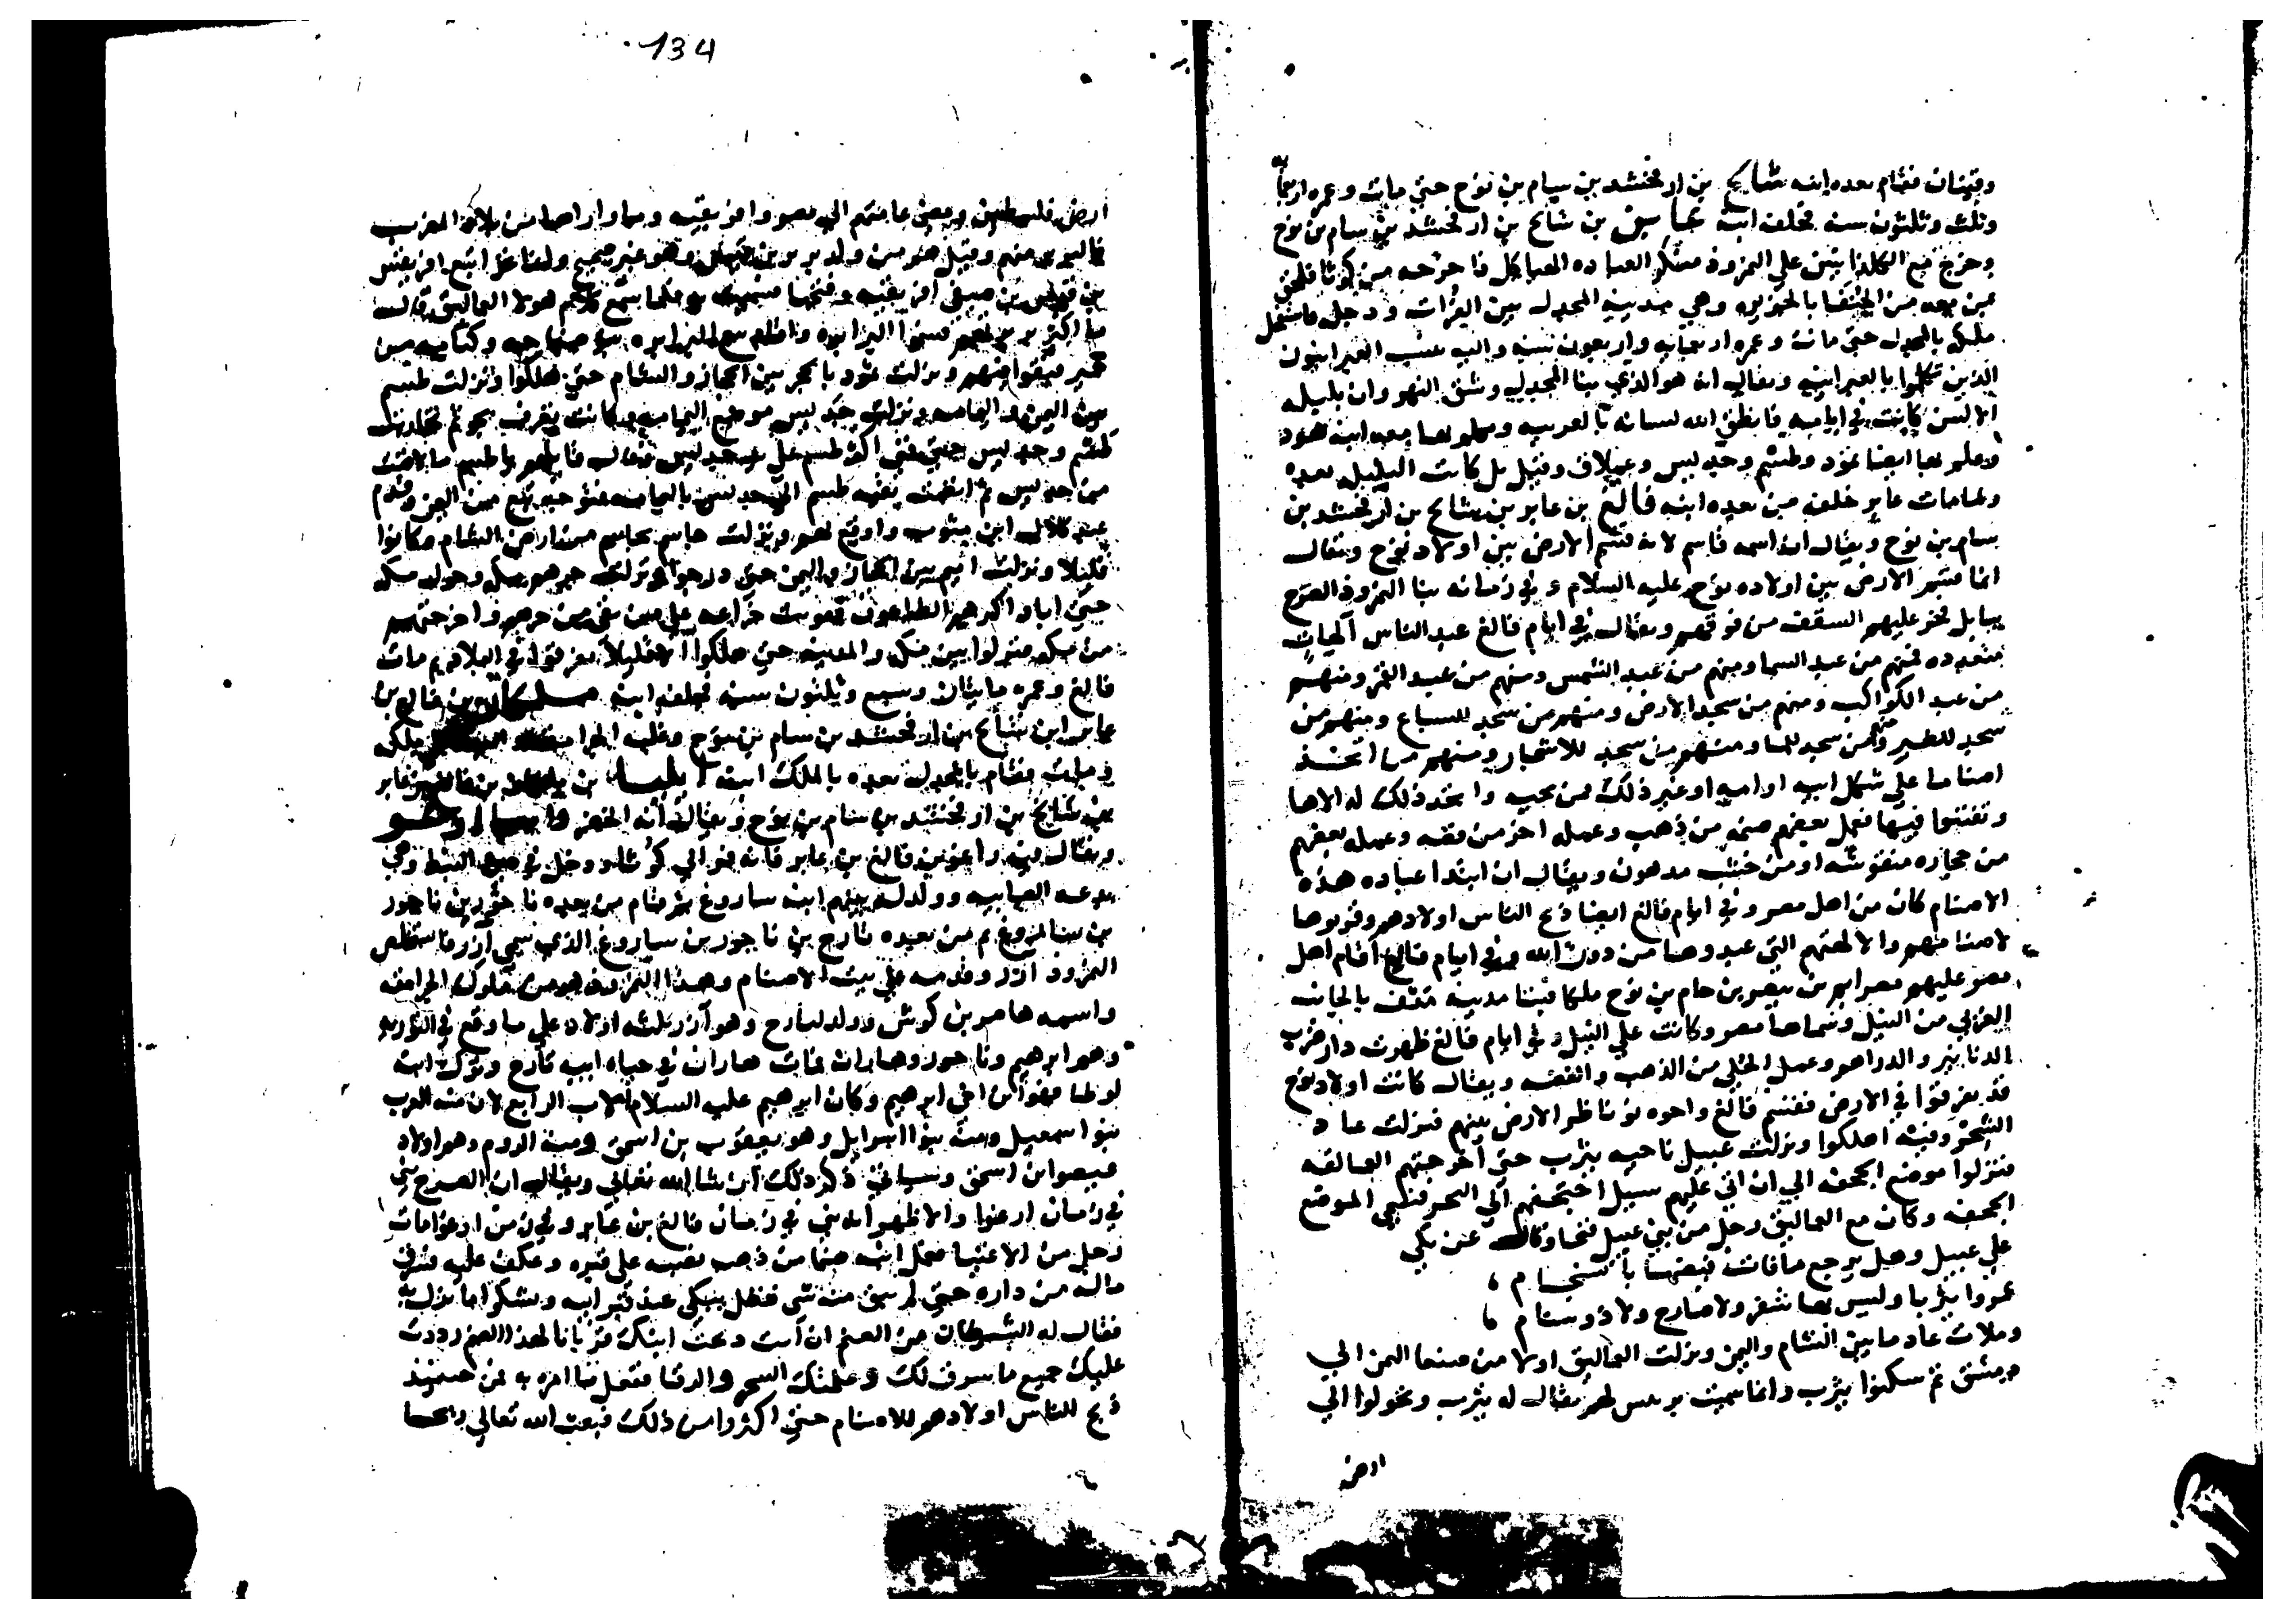 وقينان فقام بعده ابنه شالخ بن ارفخشد بن سام بن نوح حتى مات وعمره اربعمايه
وثلث وثلثون سنه فخلف ابنه عابر بن شالخ بن ارفخشد بن سام بن نوح
وخرج مع الكلدانيين على النمروذ منكر العباده الهياكل فاخرجه من كوثا فلحق
بمن معه من الخلفا بالجزيره وهي مدينه المجدل بين الفرات ودجله
ملكه بالمجدل حتى مات وعمره اربعمايه واربعون سنه واليه نسب العبرانيون
الذين تكلموا بالعبرانيه ويقال انه هو الذي بنا المجدل وشق النهروان بليله
الالسن كانت في ايامه فانطق الله لسانه بالعربيه وتكلم بها بعده ابنه هود
وتكلم بها ايضا ثمود وطسم وجديس وعملاق وقيل بل كانت البلبله بعده
ولما مات عابر خلف من بعده ابنه فالغ بن عابر بن شالخ بن ارفخشد بن
سام بن نوح ويقال ان اسمه قاسم لانه قسم الارض بين اولاد نوح ويقال
انما قسم الارض بين اولاده نوح عليه السلام وفي زمانه بنا النمروذ الصرح
ببابل فخر عليهم السقف من فوقهم ويقال في ايام فالغ عبد الناس آلهات
متعدده فمنهم من عبد السما ومنهم من عبد الشمس ومنهم من عبد القمر ومنهم
من عبد الكواكب ومنهم من سجد الارض ومنهم من سجد للسباع ومنهم من
سجد للطير ومنهم من سجد للما ومنهم من سجد للاشجار ومنهم من اتخذ
اصناما على شكل ابيه او اميه او غير ذلك ممن يحبه واتخذ ذلك له الاها
وتفننوا فيها فعمل بعضهم صنمه من ذهب وعمله اخر من فضه وعمله بعضهم
من حجاره منقوشه او من خشب مدهون ويقال ان ابتدا عباده هذه
الاصنام كان من اهل مصر وفي ايام فالغ ايضا ذبح الناس اولادهم وقربوها
لاصنامهم والالهتهم التي عبدوها من دون الله وفي ايام فالغ اقام اهل
مصر عليهم مصرايم بن بيصر بن حام بن نوح ملكا فبنا مدينه منف بالجانب
الغربي من النيل وسماها مصر وكانت على النيل وفي ايام فالغ ظهرت دار ضرب
الدنانير والدراهم وعمل الحلي من الذهب والفضه ويقال كانت اولاد نوح
قد تفرقوا في الارض فقسم فالغ واخوه يونناظر الارض بينهم فنزلت عاد
الشحر وفيه اهلكوا ونزلت عبيل ناحيه يثرب حتى اخرجتهم العمالقه
فنزلوا موضع الجحفه الي ان اتي عليهم سيل اجتحفهم الي البحر فسمي الموضع
الجحفه وكان مع العماليق رجل من بني عبيل فنجا وقال عين بكي
على عبيل وهل يرجع ما فات فيضها بانسجام ،
عمروا يثربا وليس بها شفر ولا صارخ ولا ذو سنام ،
وملات عاد ما بين الشام واليمن ونزلت العماليق اولا من صنعا اليمن الي
دمشق ثم سكنوا يثرب وانما سميت برجل منهم يقال له يثرب وتحولوا الي
ارض
134
ارض فلسطين ومضى عامتهم الى مصر وافريقيه وما وراها من بلاد المغرب
فالبربر منهم وقيل هم من ولد بربر بن وهو غير صحيح ولما غزا تبع افريقس
بن قيس بن صيفي افريقيه وفتحها سميت به فلما سمع كلام هولا العماليق قال
ما اكثر بربرتهم فسموا البرابره واقام مع البرابره من صنهاجه وكتامه من
حمير فبقوا فيهم ونزلت ثمود بالحجر بين الحجاز والشام حتى هلكوا ونزلت طسم
بين اليمن واليمامه ونزلت جديس موضع اليمامه وكانت تعرف بجو ثم تحاربت
طسم وجديس حتى
من جديس ثم بالیمامه من اليمن وقدم
عبد كلال ابن مثوب واوقع بهم ونزلت جاسم بجاسم من ارض الشام وكانوا
قليلا ونزلت اميم بين الحجاز واليمن حتى درجوا ونزلت جرهم مكه وحول مكه
حتى اباد اكثرهم الطاعون فقويت خزاعه على من بقي من جرهم واخرجتهم
من مكه فنزلوا بين مكه والمدينه حتى هلكوا الا قليلا تفرقوا في البلاد ثم مات
فالغ وعمره مايتان وسبع وثلثون سنه فخلف ابنه ملكان بن فالغ بن
عابر ابن شالخ بن ارفخشد بن سام بن نوح وغلب الجرامقه
بالمجدل بعده بالملك ابنه ايليا بن ملكان بن فالغ بن عابر
بن شالخ بن ارفخشد بن سام بن نوح ويقال انه الخضر
ويقال فيه راعو بن فالغ بن عابر فانه فر الي كوثا ودخل في دين النبط وهي
بدعه الصابيه وولد له بينهم ابنه ساروغ ثم قام من بعده ناحور بن ناحور
بن ساروغ ثم من بعده تارح بن ناحور بن ساروغ الذي سمي آزر فاستخلص
النمروذ آزر وقدمه على بيت الاصنام وهذا النمروذ هو من ملوك الجرامقه
واسمه هاصر بن كوش وولد لتارح وهو آزر ثلثه اولاد على ما وقع في التوريه
وهم ابرهيم وناحور وهاران فمات هاران في حياه ابيه تارح وترك ابنه
لوطا فهو ابن اخي ابرهيم وكان ابرهيم عليه السلام الاب الرابع لان منه العرب
بنو اسمعيل ومنه بنوا اسرايل وهو يعقوب بن اسحق ومنه الروم وهم اولاد
عيصو ابن اسحق وسياتي ذكر ذلك ان شا الله تعالي ويقال ان الصرح بني
في زمان ارعوا والاظهر انه بني في زمان فالغ بن عابر وفي زمن ارعوا مات
رجل من الاغنيا فعمل ابنه صنما من ذهب نصبه على قبره وعكف عليه فسرق
ماله من داره حتى لم يبق منه شي فظل يبكي عند قبر ابيه ويشكوا ما نزل به
فقال له الشيطان من الصنم ان انت ذبحت ابنك قربانا لهذا الصنم رددت
عليك جميع ما سرق لك وعلمتك السحر والرقا ففعل ما امره به فمن حينيذ
ذبح للناس اولادهم للاصنام حتى اكثروا من ذلك فبعث الله تعالي ريحا